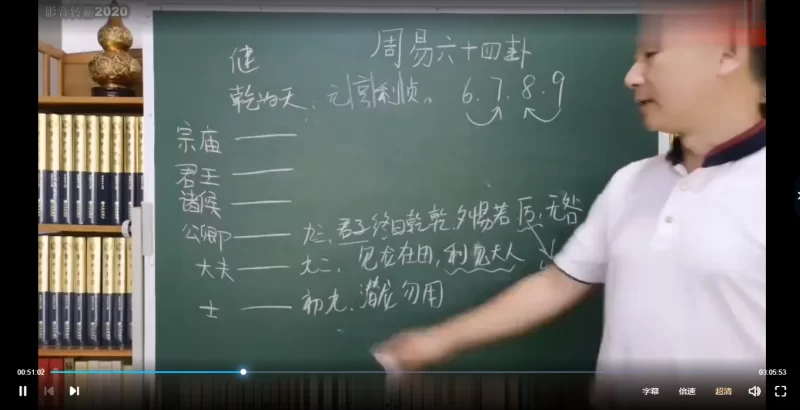 影音转新2020
健
周易六十四卦
乾为天:元亨利贞。 6.7.8.9
宗庙
君王
诸候
公卿 九三,君子终日乾乾,夕惕若厉,无咎
大夫 九二,见龙在田,利见大人
士 初九,潜龙勿用
00:51:02
03:05:53
字幕
倍速
超清